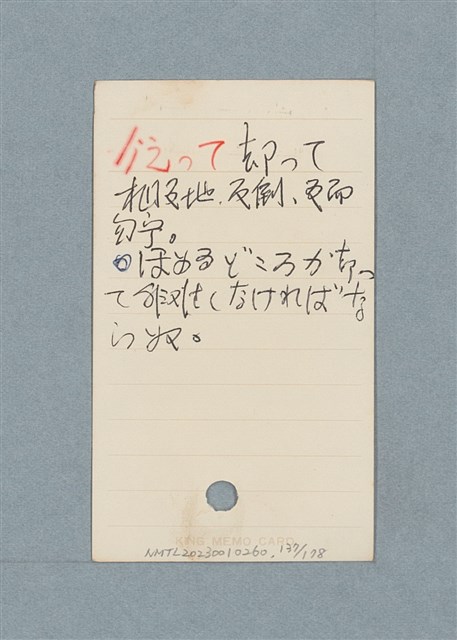 かえって 却って
相反地、反倒、反而
勿宁。
○ほめるどころか却っ
て非难しなければな
らぬ。
KING MEMO CARD
NMTL20230010260, 137/178